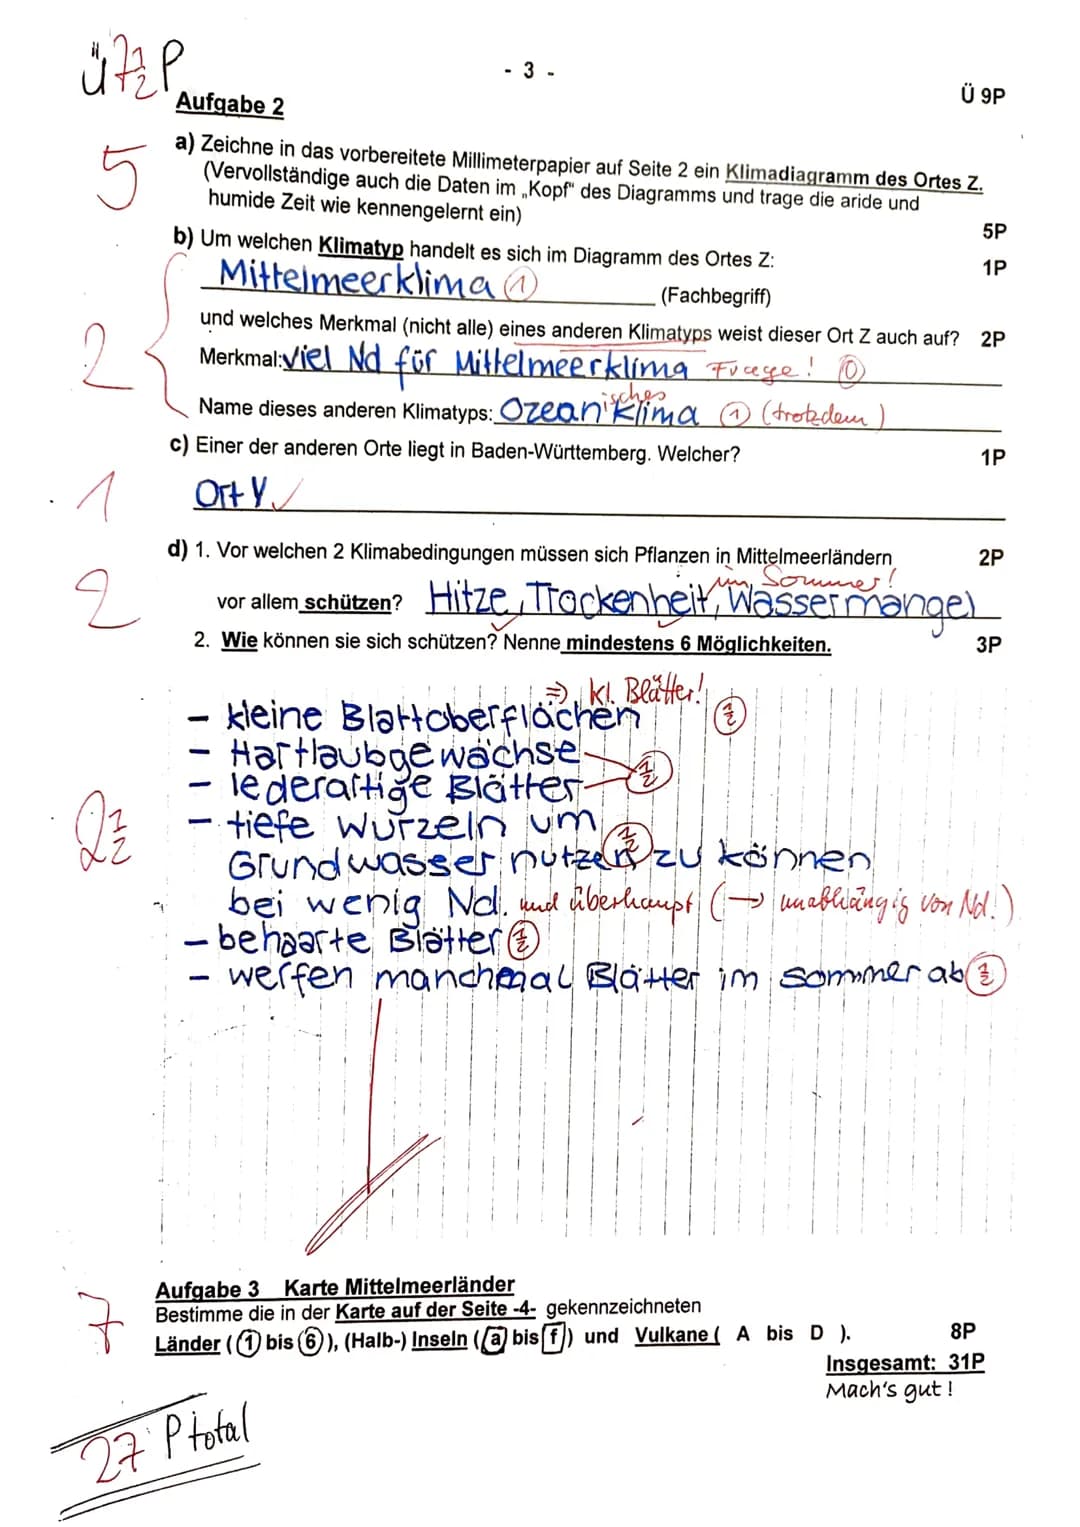 ü 7½ P
- 3 -
Ü 9P
Aufgabe 2
5
a) Zeichne in das vorbereitete Millimeterpapier auf Seite 2 ein Klimadiagramm des Ortes Z.
(Vervollständige auch die Daten im „Kopf" des Diagramms und trage die aride und
humide Zeit wie kennengelernt ein)
5P
b) Um welchen Klimatyp handelt es sich im Diagramm des Ortes Z:
1P
Mittelmeerklima ①
(Fachbegriff)
2
und welches Merkmal (nicht alle) eines anderen Klimatyps weist dieser Ort Z auch auf? 2P
Merkmal: viel Nd für Mittelmeerklima Frage! ⓪
isches
Name dieses anderen Klimatyps: Ozeanklima ① (trotzdem)
c) Einer der anderen Orte liegt in Baden-Württemberg. Welcher? 1P
1 Ort Y ✓
d) 1. Vor welchen 2 Klimabedingungen müssen sich Pflanzen in Mittelmeerländern 2P
im Sommer!
2 vor allem schützen? Hitze, Trockenheit, Wassermangel
2. Wie können sie sich schützen? Nenne mindestens 6 Möglichkeiten. 3P
⇒ kl. Blätter!
- kleine Blattoberflächen ½
- Hartlaubgewächse
- lederartige Blätter ½
2½ - tiefe Wurzeln um
Grundwasser nutzen zu können ½
bei wenig Nd. und überhaupt (→ unabhängig von Nd.!)
- behaarte Blätter ½
- werfen manchmal Blätter im Sommer ab ½
Aufgabe 3 Karte Mittelmeerländer
7
Bestimme die in der Karte auf der Seite -4- gekennzeichneten
Länder (① bis ⑥), (Halb-) Inseln (a bis f) und Vulkane ( A bis D ). 8P
Insgesamt: 31P
Mach's gut !
27 P total